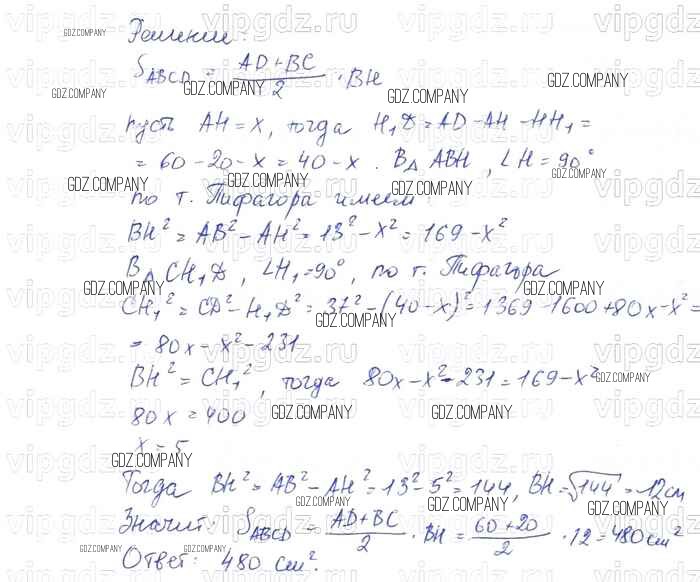 Решение:
S_ABCD = (AD+BC)/2 · BH
пусть AH = x, тогда H₁D = AD – AH – HH₁ =
= 60 – 20 – x = 40 – x . В △ ABH, ∠H = 90°
по т. Пифагора имеем:
BH² = AB² – AH² = 13² – x² = 169 – x²
В △ CH₁D, ∠H₁ = 90°, по т. Пифагора
CH₁² = CD² – H₁D² = 37² – (40 – x)² = 1369 – 1600 + 80x – x² =
= 80x – x² – 231
BH² = CH₁², тогда 80x – x² – 231 = 169 – x²
80x = 400
x = 5
Тогда BH² = AB² – AH² = 13² – 5² = 144, BH = √144 = 12 см
Значит: S_ABCD = (AD+BC)/2 · BH = (60+20)/2 · 12 = 480 см²
Ответ: 480 см².
vipgdz.ru
GDZ.COMPANY